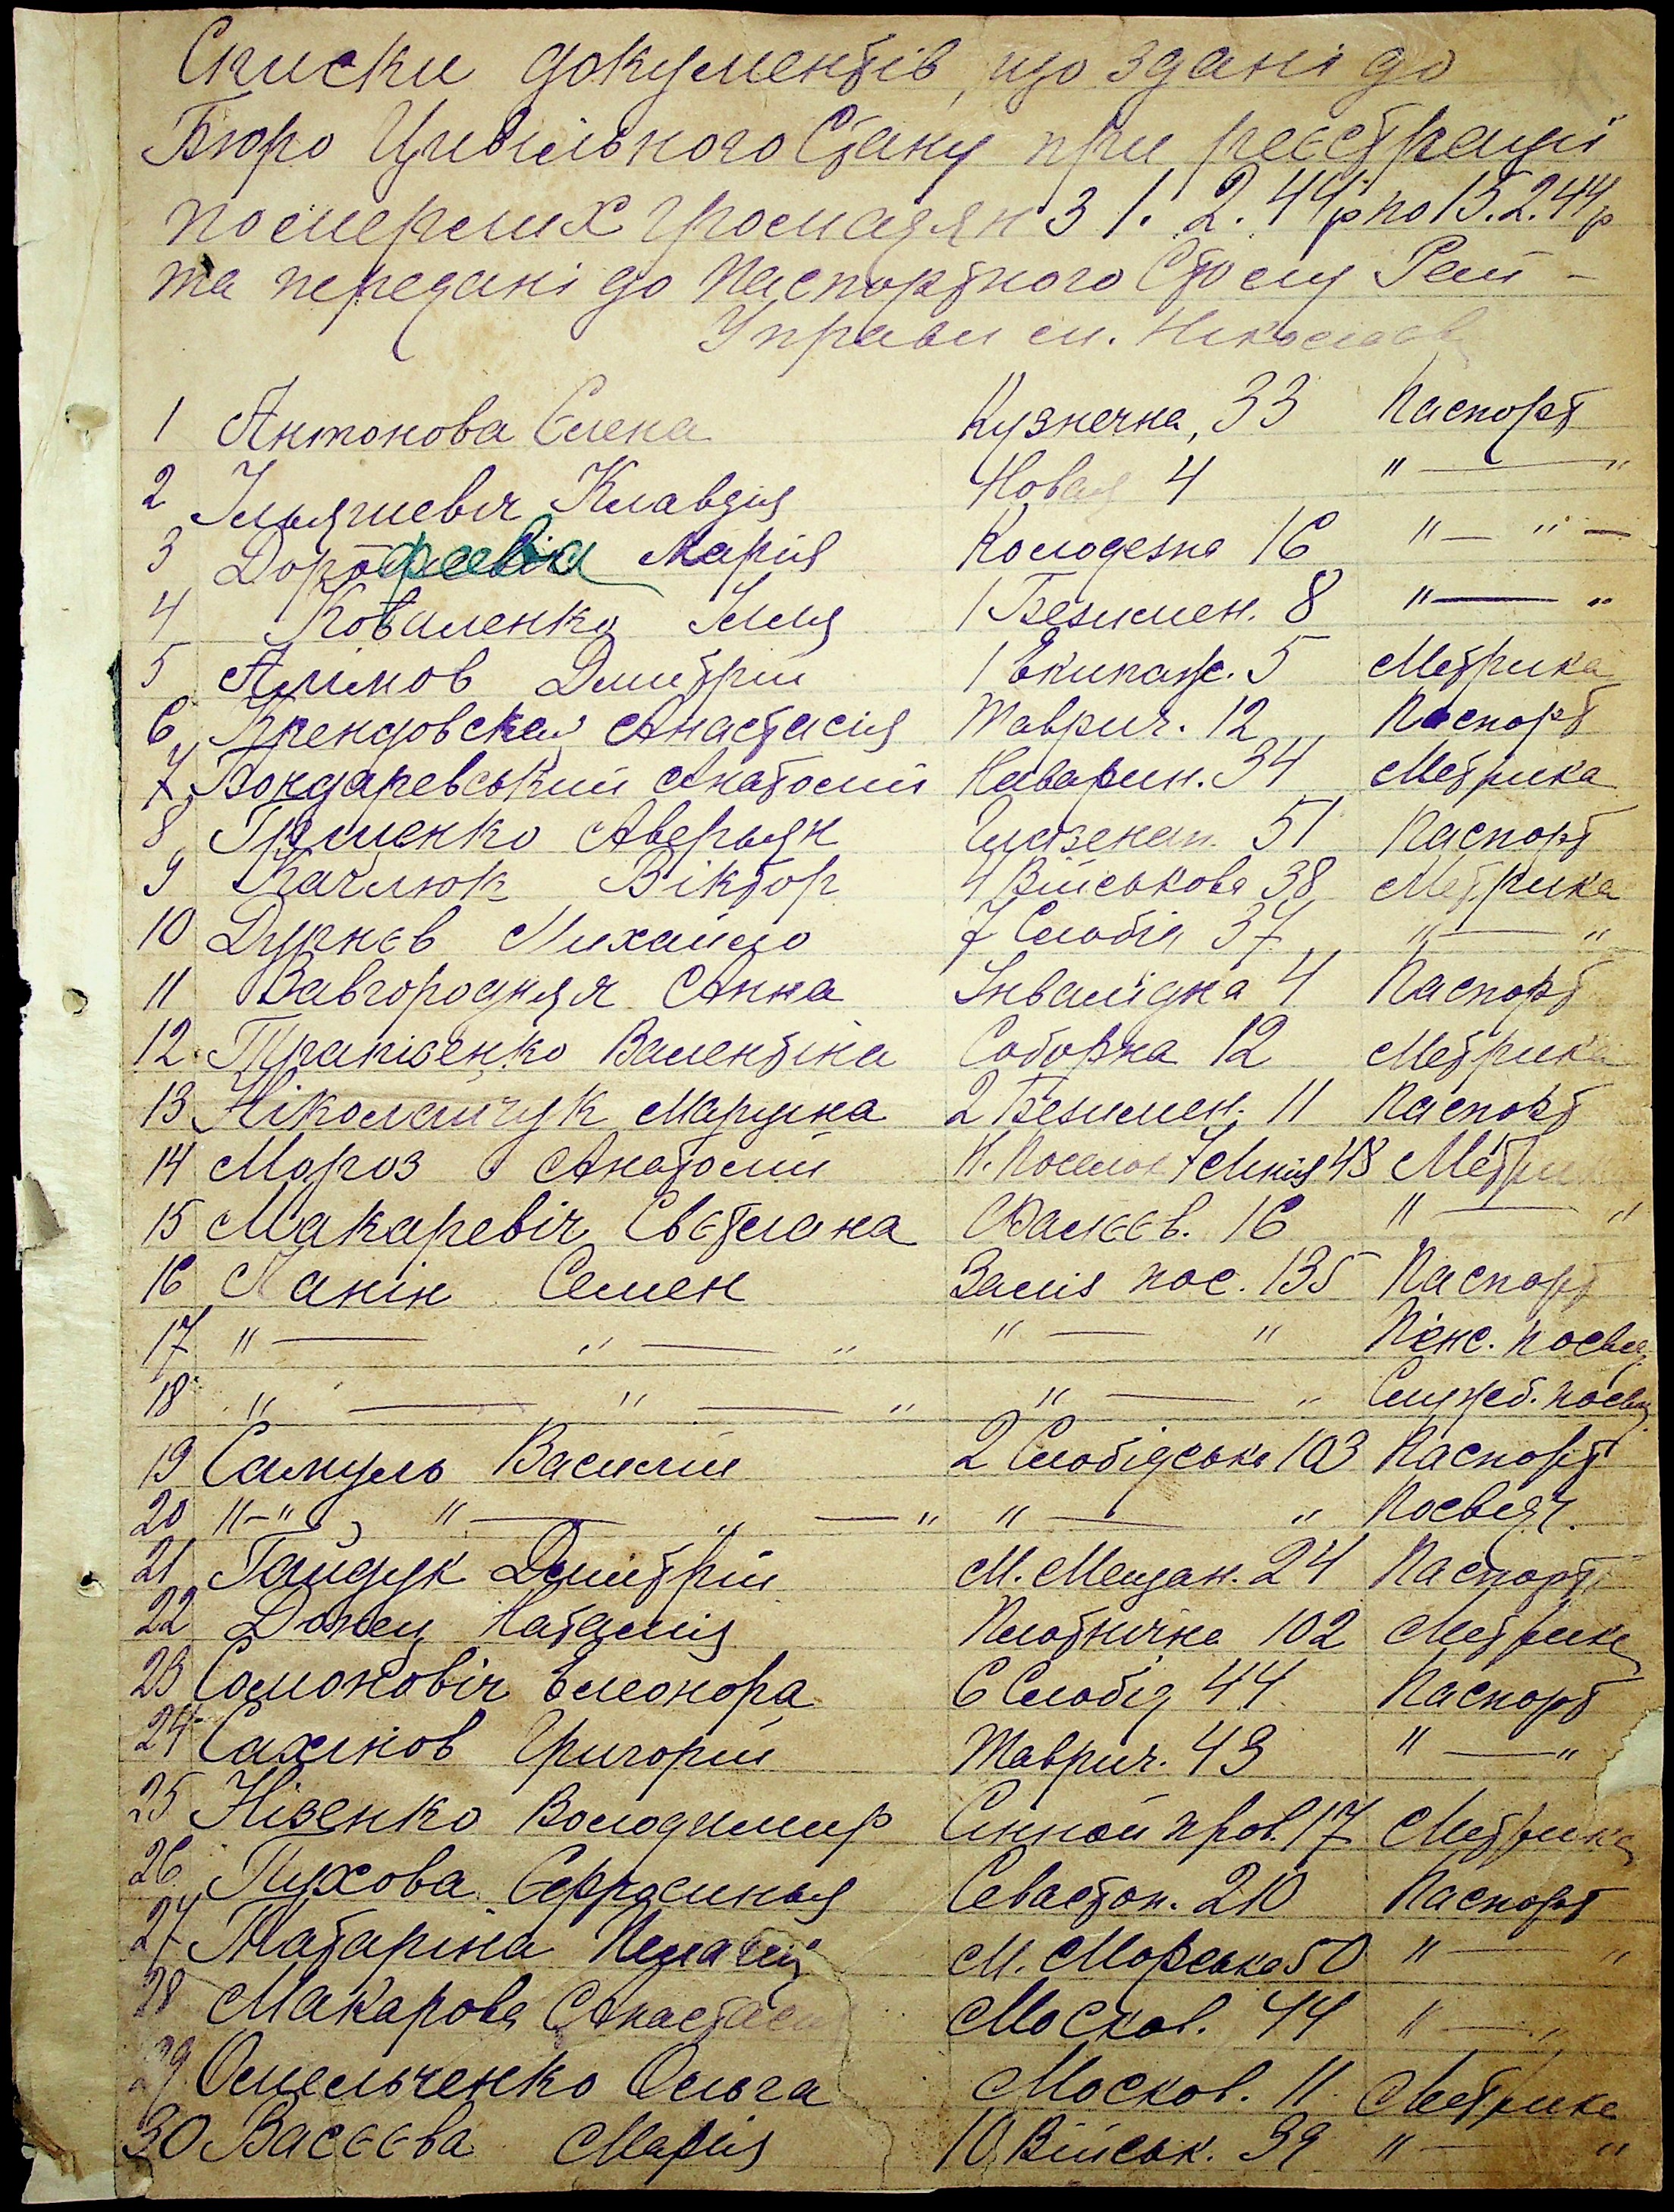 Списки документів, що здані до
Бюро Цивільного Стану при реєстрації
померлих громадян з 1. 2. 44р по 15. 2. 44р
та передані до Паспортного Столу Рай –
Управи м.
1 Антонова Єлена Кузнечна, 33 Паспорт
2 Клавдія Новая 4 " — "
3 Марія Колодезна 16 " — " —
4 Коваленко Юлія 1 Безимен. 8 " — "
5 Алімов Дмитрій 1 Екипаж. 5 Метрика
6 Крендовская Анастасія Таврич. 12 Паспорт
7 Бондаревський Анатолій Наварин. 34 Метрика
8 Аверьян 51 Паспорт
9 Качлюк Віктор 4 Військова 38 Метрика
10 Дурнєв Михайло 7 Слобід 37 " — "
11 Завгородняя Анна Інвалідна 4 Паспорт
12 Валентіна Соборна 12 Метрика
13 Ніколайчук Марушка 2 Безимен. 11 Паспорт
14 Мороз Анатолій Н. Поселок 7 Линія 48
15 Макаревіч Свєтлана 16 " — "
16 Панін Семен Заліз пос. 135 Паспорт
17 " — " — " " — " Пенс. посвід
18 " — " — " " — " Служб. посвід
19 Самуль Василій 2 Слобідська 103 Паспорт
20 " – " " — " — " " — " Посвідч.
21 Гайдук Дмитрій М. Мещан. 24 Паспорт
22 Донец Наталія Плотнічна 102 Метрика
23 Соломовіч Елеонора 6 Слобід 44 Паспорт
24 Сахнов Григорій Таврич. 43 " — "
25 Нізенко Володимир Сінной пров. 17 Метрика
26 Пухова Єфросинья Севастоп. 210 Паспорт
27 Татаріна М. Морська 50 " — "
28 Макарова Москов. 44 " — "
29 Омельченко Ольга Москов. 11. Метрика
30 Васєєва Марія 10 Військ. 39 " — "